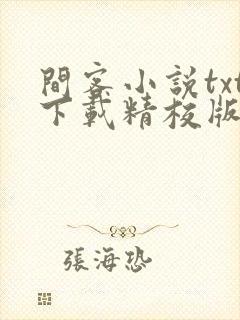 間客小說txt
下載精校版
張海恐